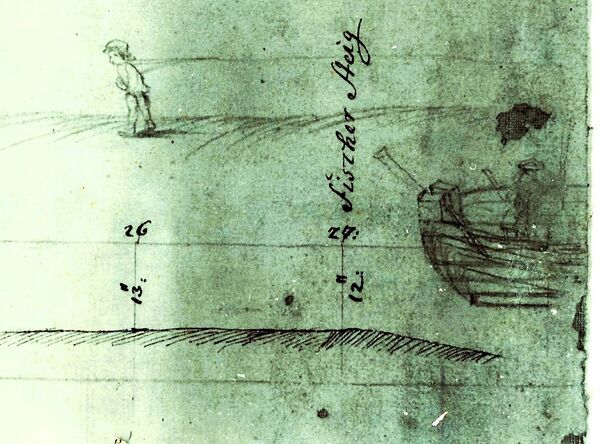 Fischer Steig
26
27:
"13:
"12: